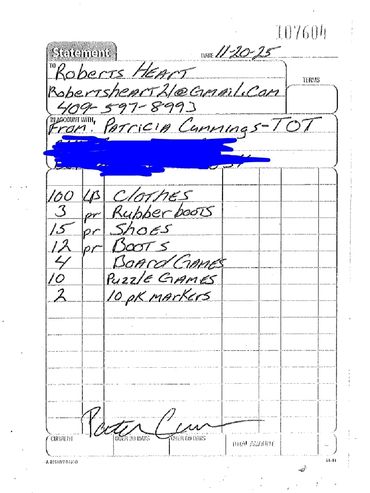 107604
Statement
DATE 11-20-25
TO Roberts Heart
Robertsheart21@Gmail.Com
409-597-8993
TERMS
IN ACCOUNT WITH
From: Patricia Cummings-TOT
100 LB Clothes
3 pr Rubber boots
15 pr Shoes
12 pr Boots
4 Board Games
10 Puzzle Games
2 10 pk markers
CURRENT
OVER 30 DAYS
OVER 60 DAYS
TOTAL AMOUNT